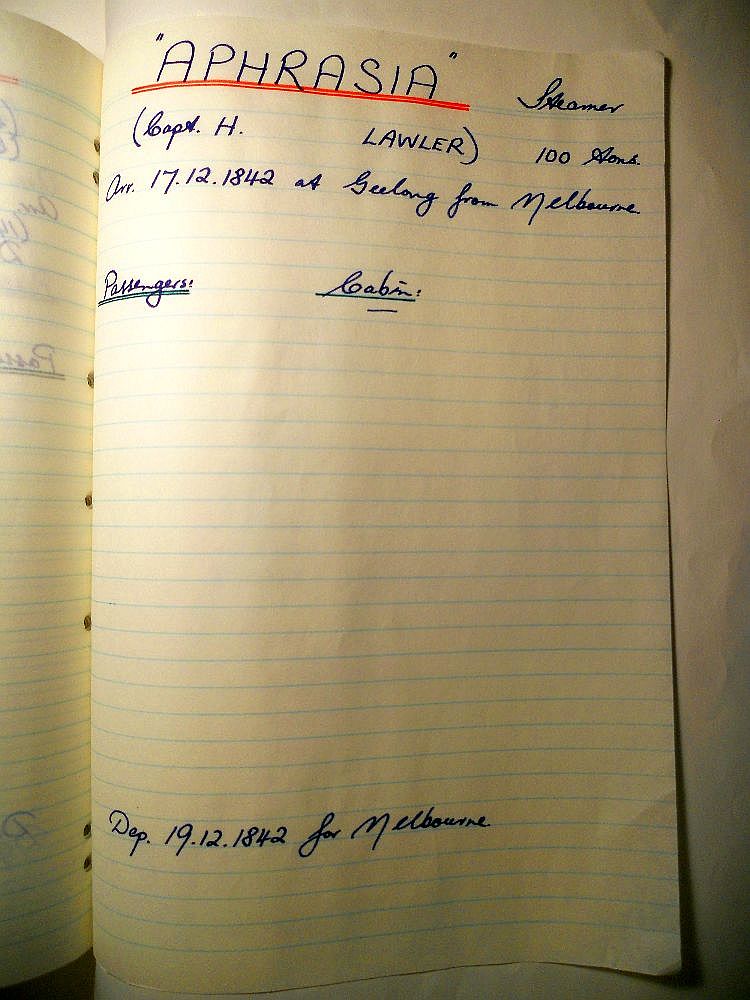 "APHRASIA" Steamer
(Capt. H. LAWLER) 100 tons.
Arr. 17.12.1842 at Geelong from Melbourne.
Passengers: Cabin:
Dep. 19.12.1842 for Melbourne